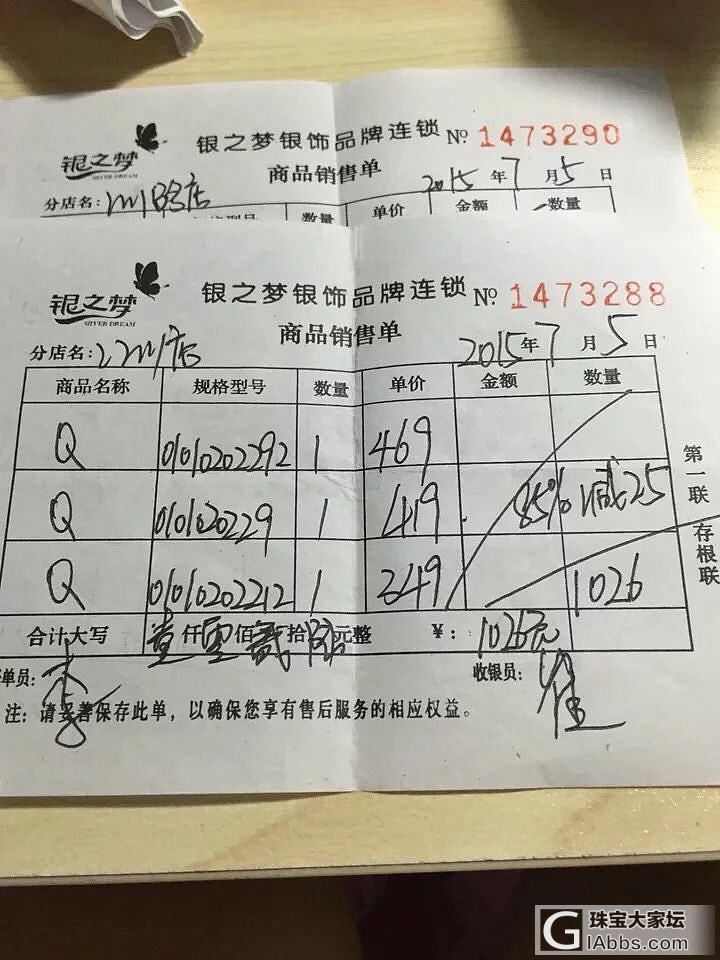 银之梦
SILVER DREAM
银之梦银饰品牌连锁 № 1473290
商品销售单
分店名: 店 2015年7月5日
数量 单价 金额 数量
银之梦
SILVER DREAM
银之梦银饰品牌连锁 № 1473288
商品销售单
分店名: 店 2015年7月5日
商品名称 规格型号 数量 单价 金额 数量
Q 01010202292 1 469
Q 010102029 1 419 85% 减25
Q 01010202212 1 349 1026
合计大写 壹仟零佰贰拾陆元整 ¥: 1026元
单员: 李 收银员: 崔
注: 请妥善保存此单，以确保您享有售后服务的相应权益。
第一联 存根联
G 珠宝大家坛
IAbbs.com